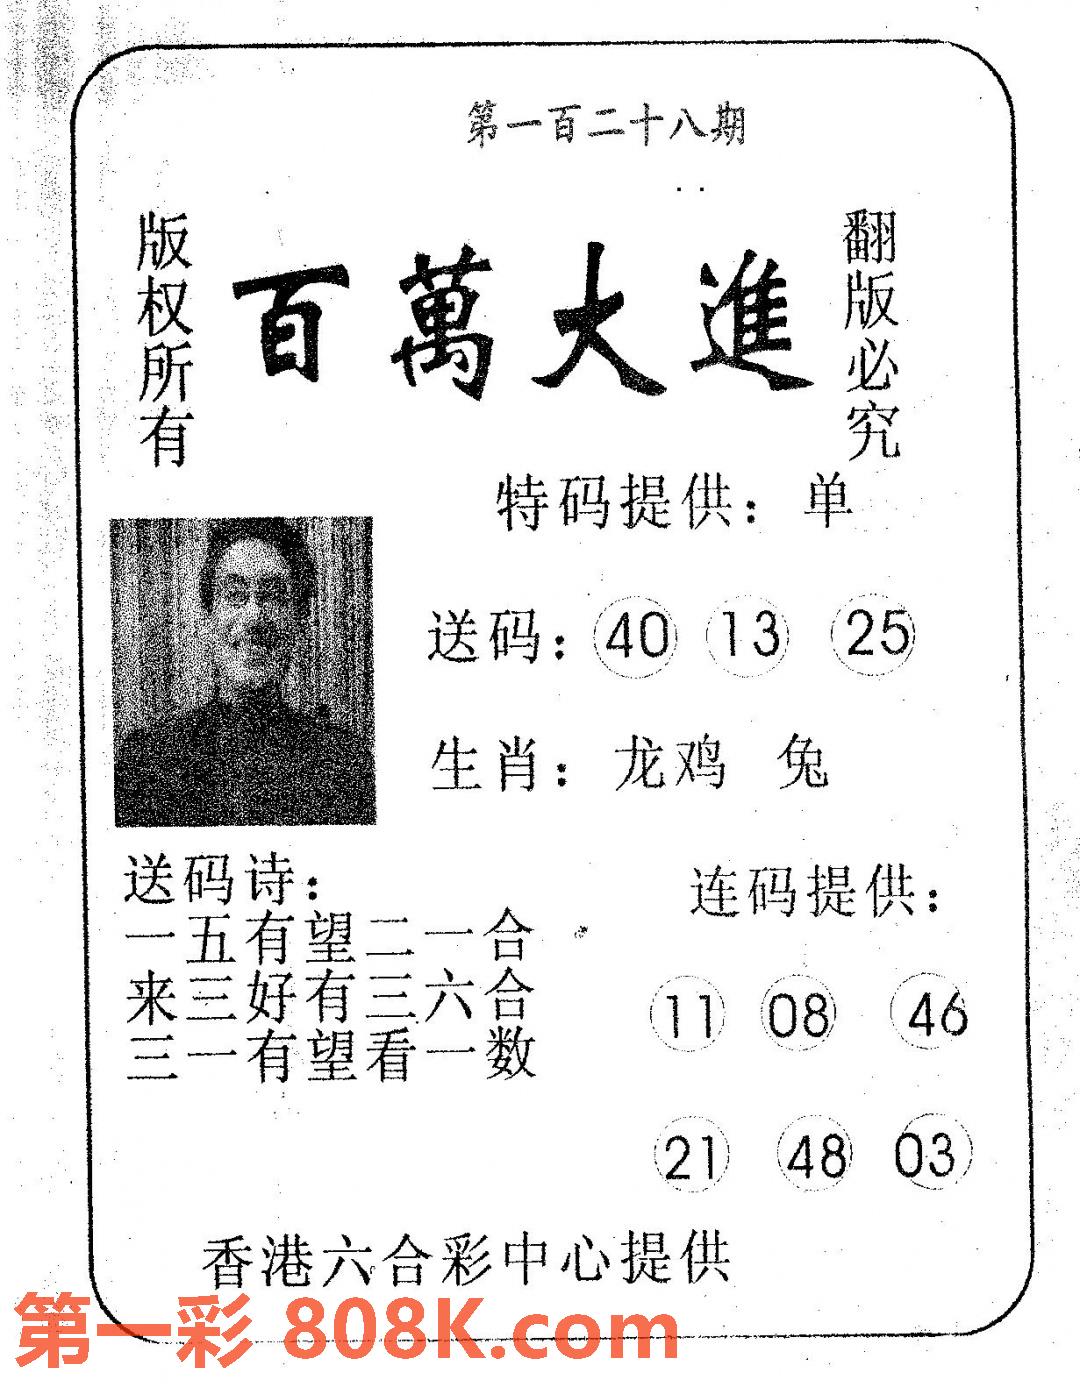 第一百二十八期
版权所有
百萬大進
翻版必究
特码提供：单
送码：40 13 25
生肖：龙鸡 兔
送码诗：
一五有望二一合
来三好有三六合
三一有望看一数
连码提供：
11 08 46
21 48 03
香港六合彩中心提供
第一彩 808K.com